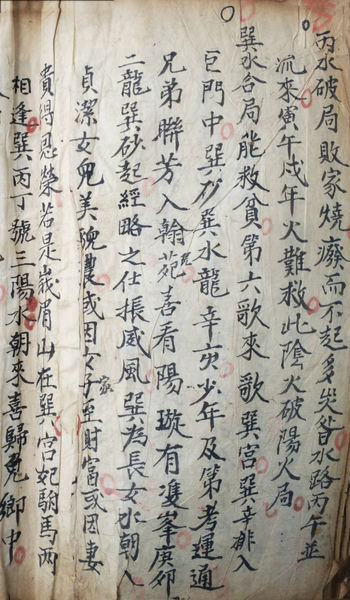 丙水破局敗家燒癈而不起多災咎水路丙午並
流來寅午戌年火難救此陰火破陽火局
巽水合局能救貧第六歌來歌巽宮巽辛排入
巨門中巽砂巽水龍辛亥少年及第考運通
兄弟聯芳入翰苑喜看陽璇有雙峯庚卯
二龍巽砂起經略之仕振威風巽為長女水朝入
貞潔女兒美貌農或因女家子至財富或因妻
貴得恩榮若是峨眉山在巽宮妃駙馬兩
相逢巽丙丁號三陽水朝來喜歸鬼鄉中